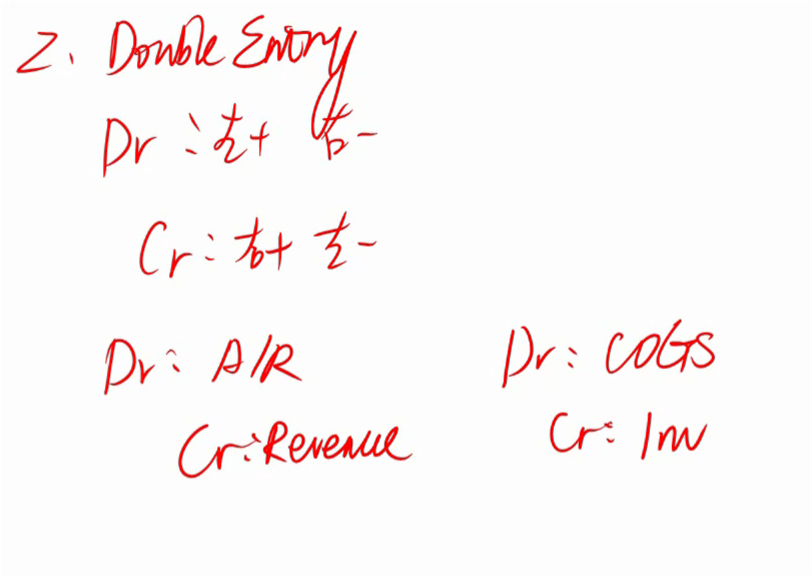 2、Double Entry
Dr：左+ 右-
Cr：右+ 左-
Dr：A/R Dr：COGS
Cr：Revenue Cr：Inv